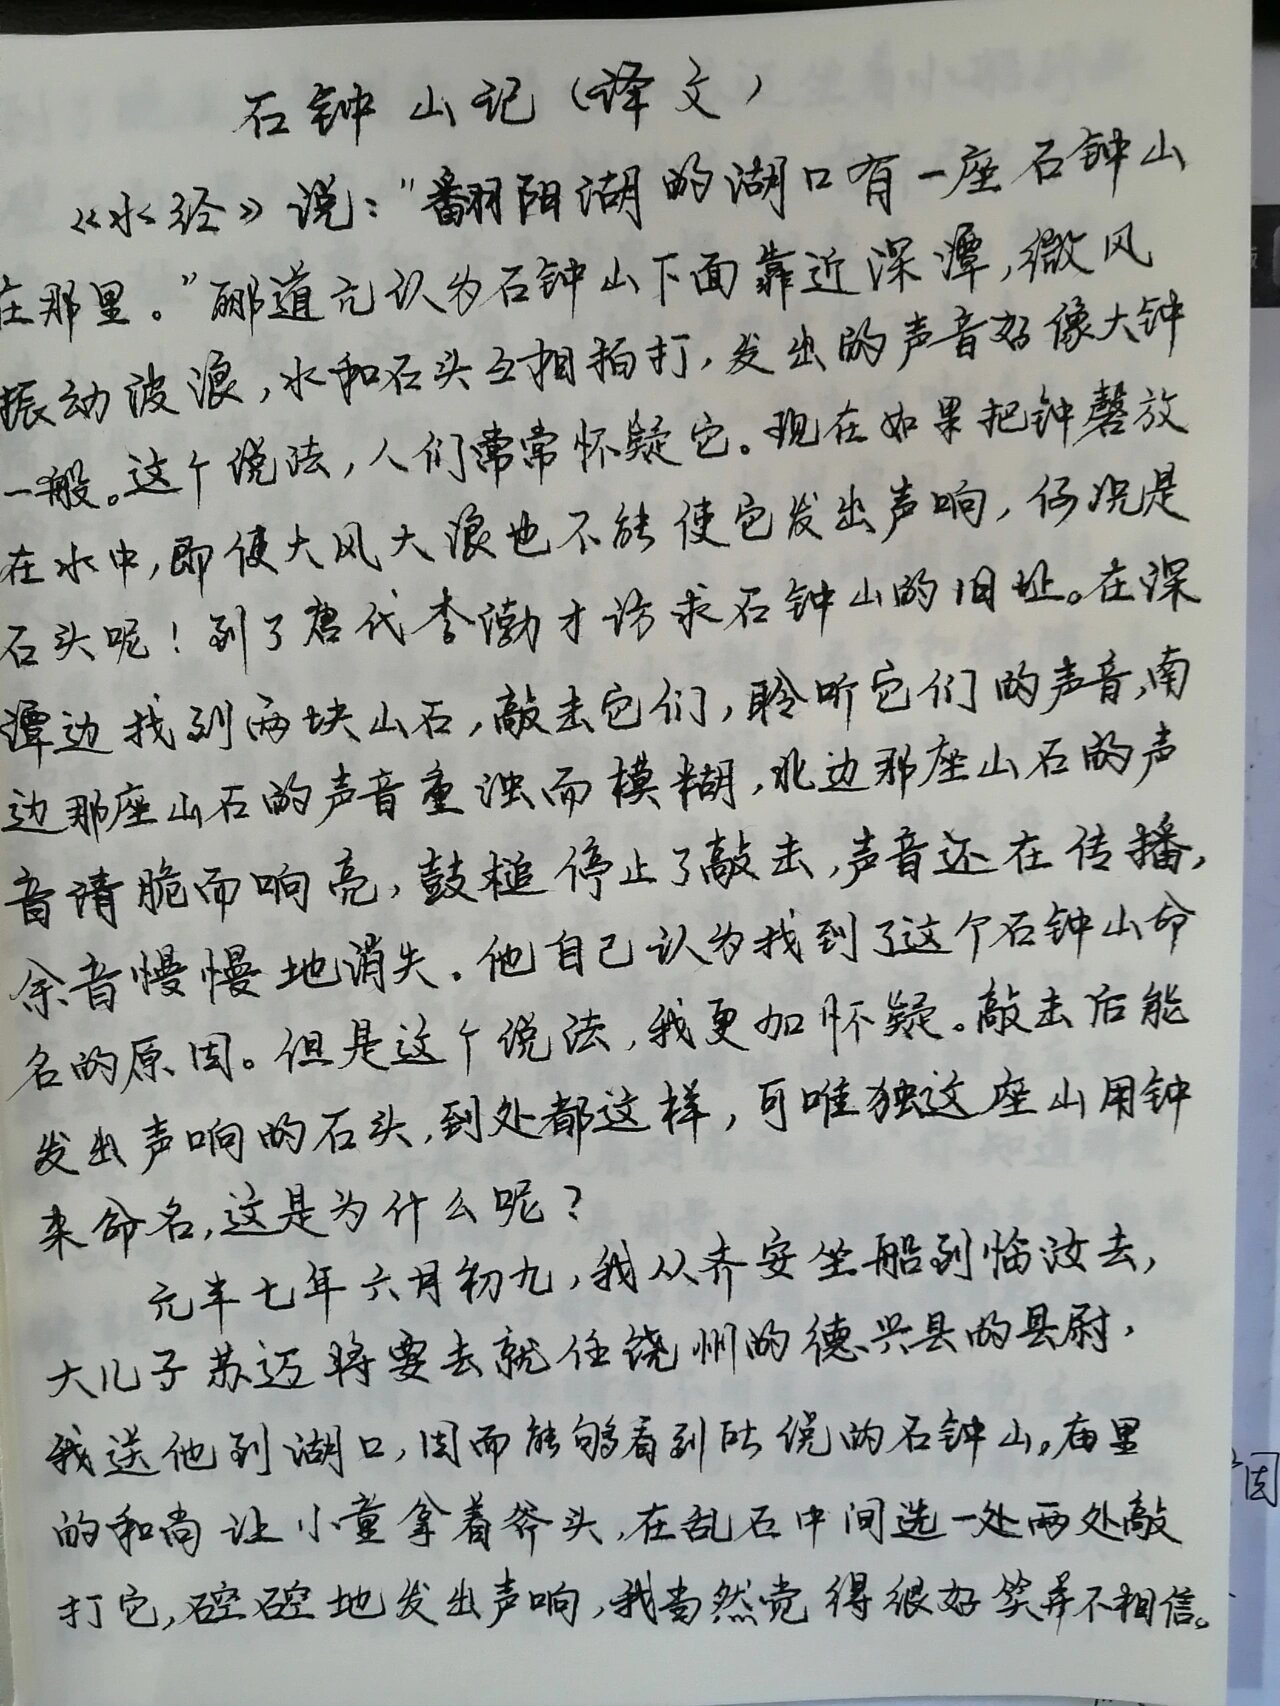 石钟山记（译文）
《水经》说："翻阳湖的湖口有一座石钟山
在那里。"郦道元认为石钟山下面靠近深潭，微风
振动波浪，水和石头互相拍打，发出的声音好像大钟
一般。这个说法，人们常常怀疑它。现在如果把钟磬放
在水中，即使大风大浪也不能使它发出声响，何况是
石头呢！到了唐代李渤才访求石钟山的旧址。在深
潭边找到两块山石，敲击它们，聆听它们的声音，南
边那座山石的声音重浊而模糊，北边那座山石的声
音请脆而响亮，鼓槌停止了敲击，声音还在传播，
余音慢慢地消失。他自己认为找到了这个石钟山命
名的原因。但是这个说法，我更加怀疑。敲击后能
发出声响的石头，到处都这样，可唯独这座山用钟
来命名，这是为什么呢？
元丰七年六月初九，我从齐安坐船到临汝去，
大儿子苏迈将要去就任饶州的德兴县的县尉，
我送他到湖口，因而能够看到所说的石钟山。庙里
的和尚让小童拿着斧头，在乱石中间选一处两处敲
打它，硿硿地发出声响，我当然觉得很好笑并不相信。
因